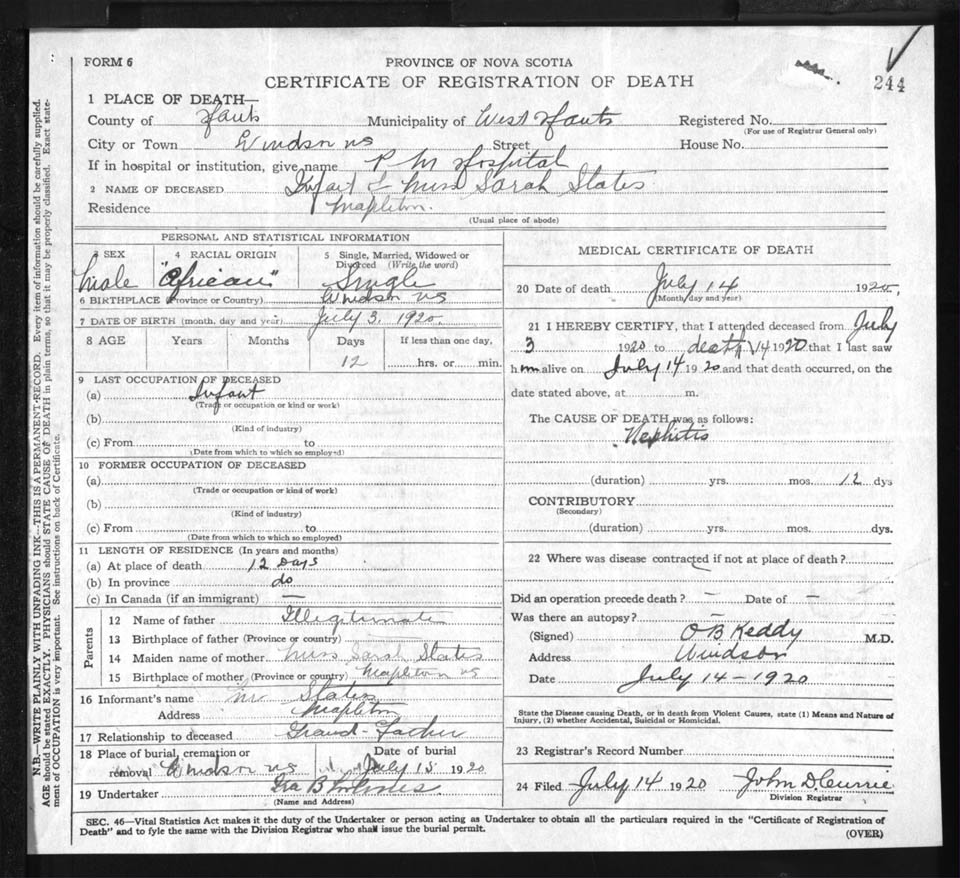 FORM 6
PROVINCE OF NOVA SCOTIA
CERTIFICATE OF REGISTRATION OF DEATH
244
1 PLACE OF DEATH—
County of Hants Municipality of West Hants Registered No.
(For use of Registrar General only)
City or Town Windsor NS Street House No.
If in hospital or institution, give name P M Hospital
2 NAME OF DECEASED Infant of Miss Sarah States
Residence Mapleton.
(Usual place of abode)
PERSONAL AND STATISTICAL INFORMATION
3 SEX 4 RACIAL ORIGIN 5 Single, Married, Widowed or Divorced (Write the word)
Male "African" Single
6 BIRTHPLACE (Province or Country) Windsor NS
7 DATE OF BIRTH (month, day and year) July 3, 1920.
8 AGE Years Months Days If less than one day,
12 hrs. or min.
9 LAST OCCUPATION OF DECEASED
(a) Infant
(Trade or occupation or kind or work)
(b)
(Kind of industry)
(c) From to
(Date from which to which so employed)
10 FORMER OCCUPATION OF DECEASED
(a)
(Trade or occupation or kind of work)
(b)
(Kind of industry)
(c) From to
(Date from which to which so employed)
11 LENGTH OF RESIDENCE (In years and months)
(a) At place of death 12 Days
(b) In province do
(c) In Canada (if an immigrant) —
Parents
12 Name of father Illegitimate
13 Birthplace of father (Province or country) —
14 Maiden name of mother Miss Sarah States
15 Birthplace of mother (Province or country) Mapleton NS
16 Informant's name Mr States
Address Mapleton
17 Relationship to deceased Grand-Father
18 Place of burial, cremation or removal Windsor NS Date of burial July 15 1920
19 Undertaker Ira B
(Name and Address)
MEDICAL CERTIFICATE OF DEATH
20 Date of death July 14 1920,
(Month, day and year)
21 I HEREBY CERTIFY, that I attended deceased from July
3 1920 to death 14 1920 that I last saw
h im alive on July 14 1920 and that death occurred, on the
date stated above, at m.
The CAUSE OF DEATH was as follows:
Nephitis
(duration) yrs. mos. 12 dys
CONTRIBUTORY
(Secondary)
(duration) yrs. mos. dys.
22 Where was disease contracted if not at place of death?
Did an operation precede death? — Date of —
Was there an autopsy? —
(Signed) O B Keddy M.D.
Address Windsor
Date July 14 - 1920
State the Disease causing Death, or in death from Violent Causes, state (1) Means and Nature of
Injury, (2) whether Accidental, Suicidal or Homicidal.
23 Registrar's Record Number
24 Filed July 14 1920 John D. Currie
Division Registrar
SEC. 46—Vital Statistics Act makes it the duty of the Undertaker or person acting as Undertaker to obtain all the particulars required in the "Certificate of Registration of
Death" and to fyle the same with the Division Registrar who shall issue the burial permit.
(OVER)
N.B.—WRITE PLAINLY WITH UNFADING INK—THIS IS A PERMANENT RECORD. Every item of information should be carefully supplied.
AGE should be stated EXACTLY. PHYSICIANS should STATE CAUSE OF DEATH in plain terms, so that it may be properly classified. Exact state-
ment of OCCUPATION is very important. See instructions on back of Certificate.